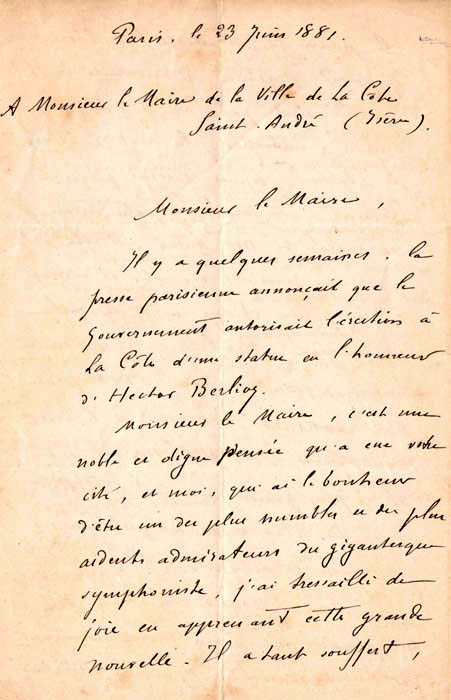 Paris. le 23 Juin 1881.
A Monsieur le Maire de la Ville de La Côte
Saint-André (Isère).
Monsieur le Maire,
Il y a quelques semaines, la
presse parisienne annonçait que le
Gouvernement autorisait l'érection à
La Côte d'une statue en l'honneur
d'Hector Berlioz.
Monsieur le Maire, c'est une
noble et digne pensée qu'a eue votre
cité, et moi, qui ai le bonheur
d'être un des plus humbles et des plus
ardents admirateurs du gigantesque
symphoniste, j'ai tressailli de
joie en apprenant cette grande
nouvelle. Il a tant souffert,